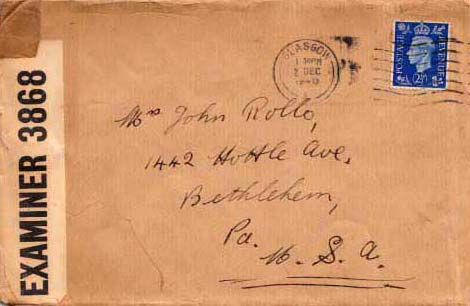 EXAMINER 3868
GLASGOW
2 DEC
POSTAGE
REVENUE
2½D
Mrs John Rollo,
1442 Hottle Ave.
Bethlehem,
Pa.
U. S. A.